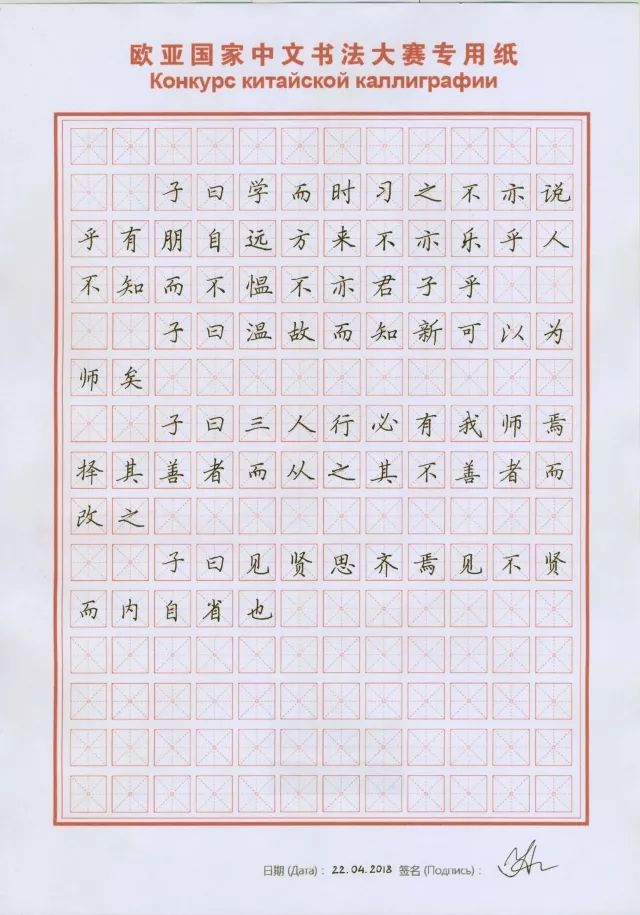 欧亚国家中文书法大赛专用纸
Конкурс китайской каллиграфии
子曰学而时习之不亦说
乎有朋自远方来不亦乐乎人
不知而不愠不亦君子乎
子曰温故而知新可以为
师矣
子曰三人行必有我师焉
择其善者而从之其不善者而
改之
子曰见贤思齐焉见不贤
而内自省也
日期 (Дата): 22.04.2018 签名 (Подпись):